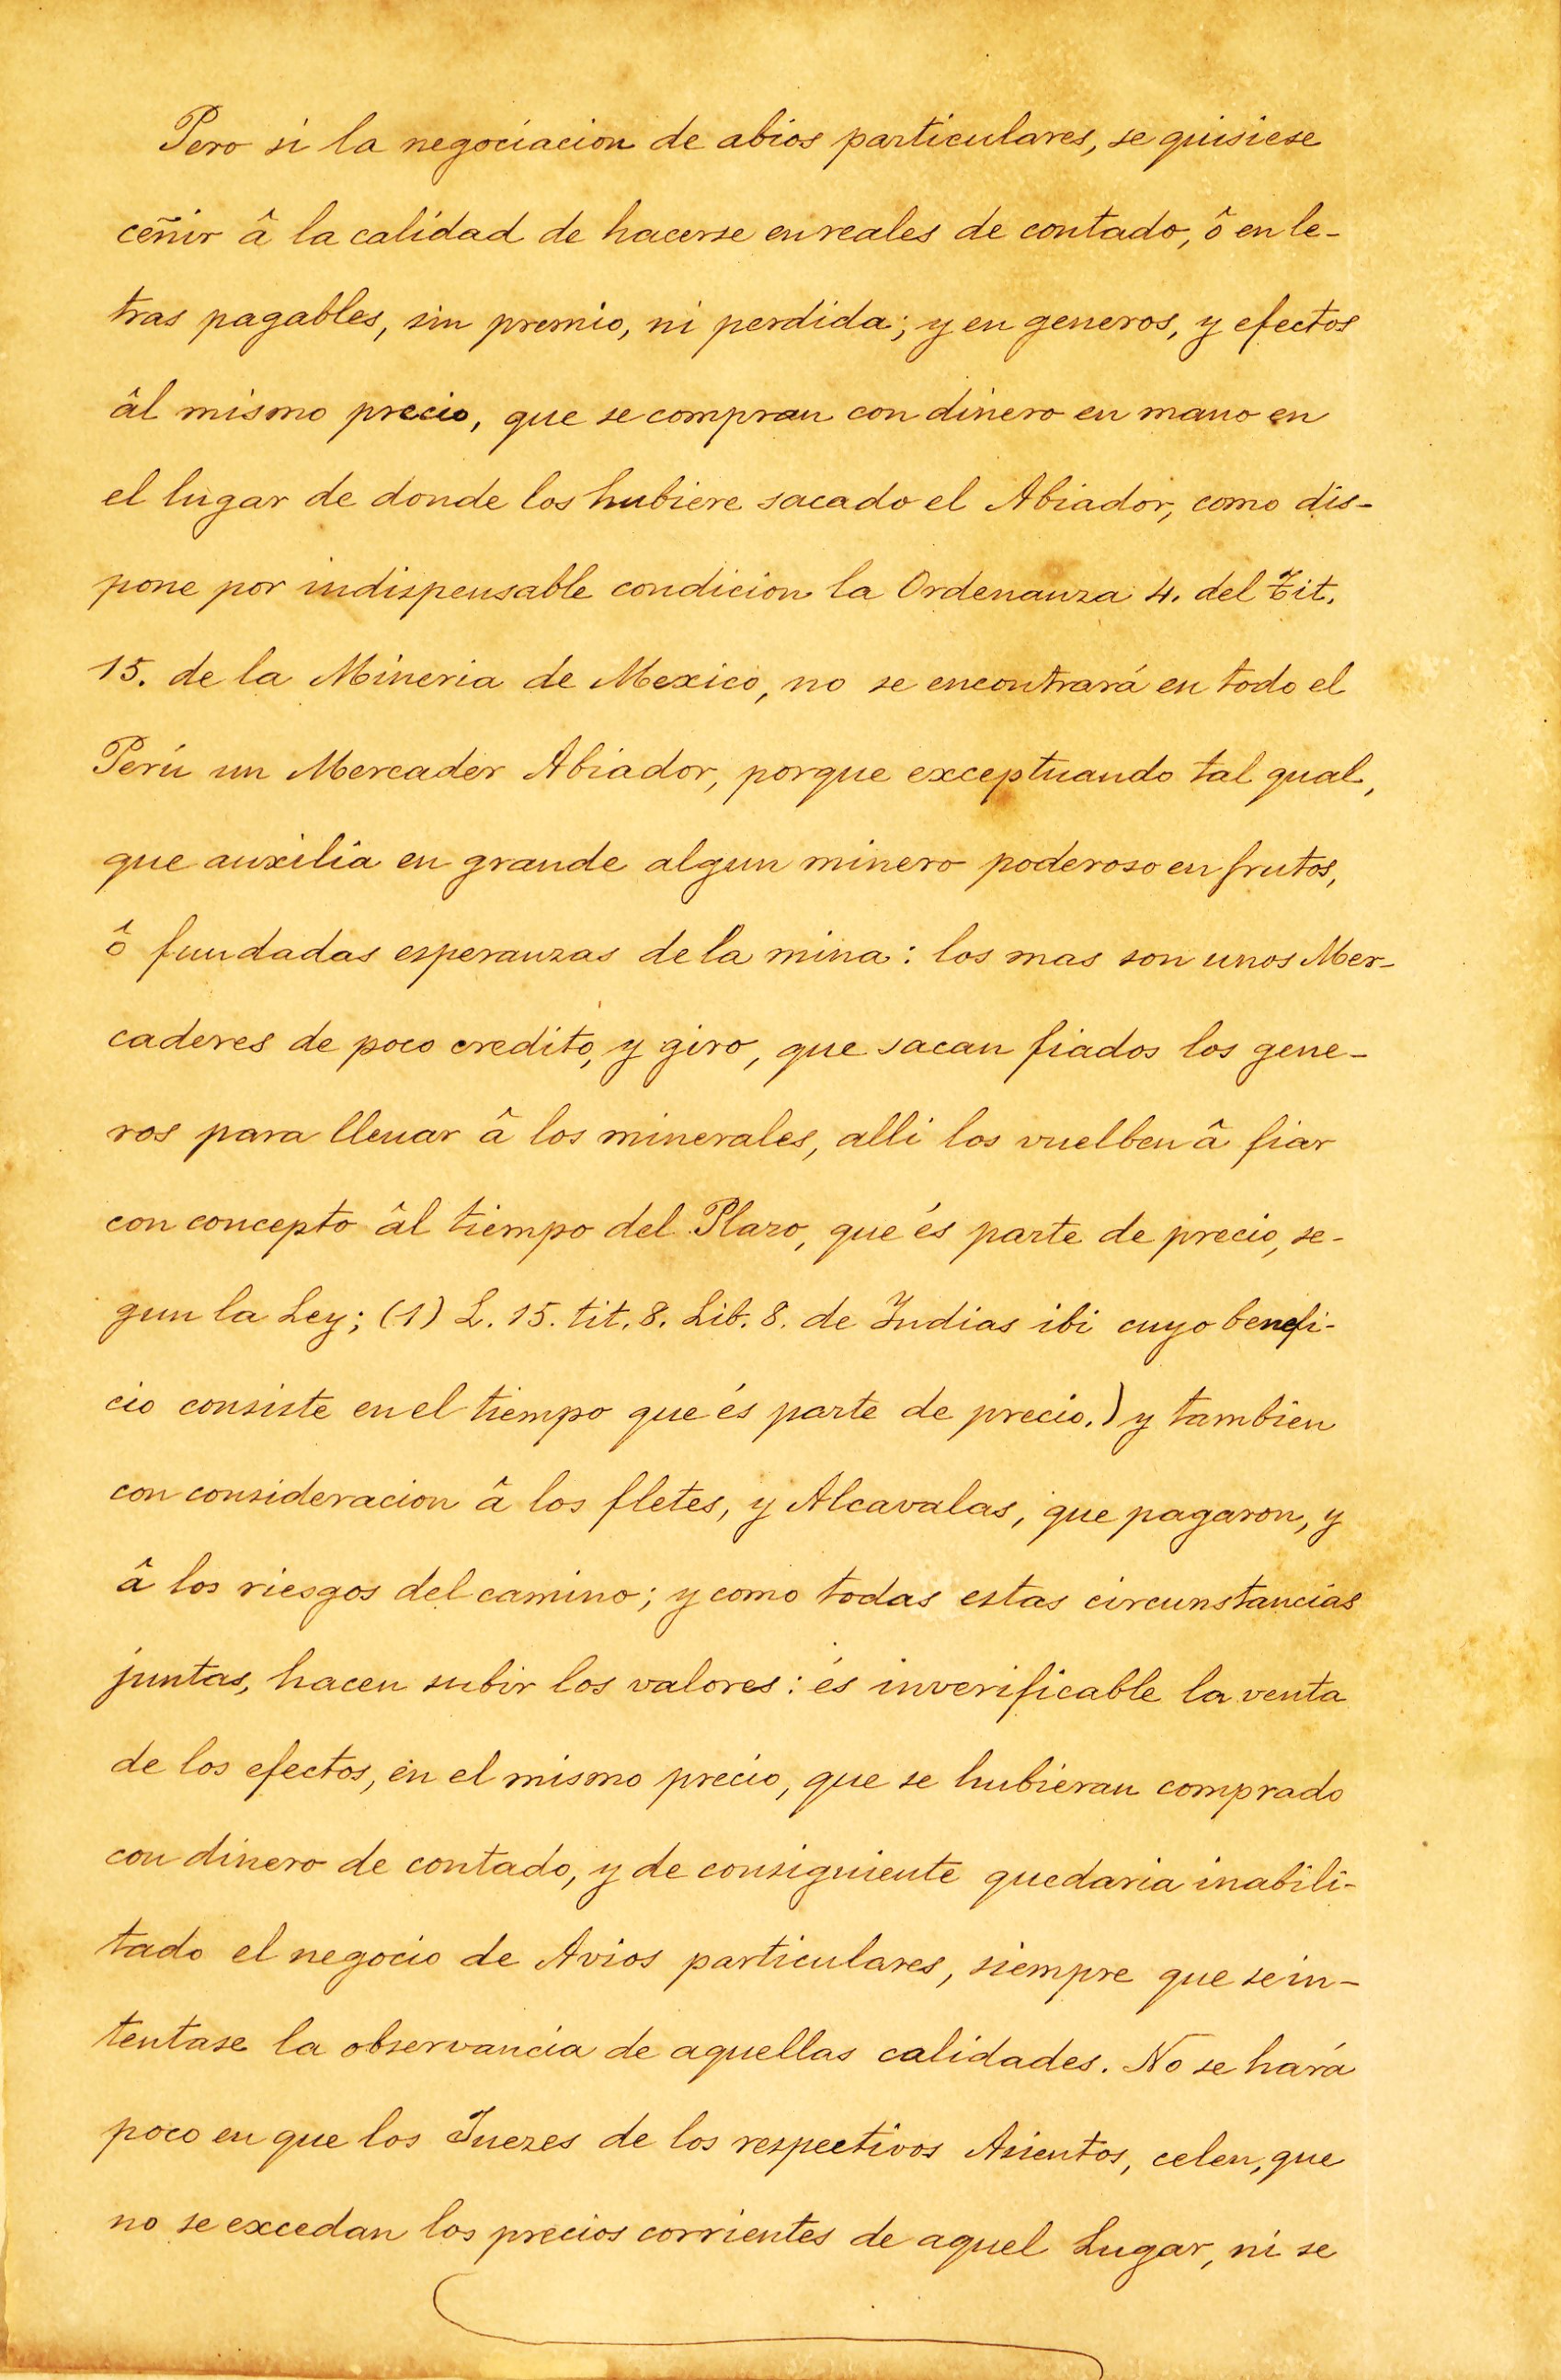 Pero si la negociacion de abios particulares, se quisiese
ceñir â la calidad de hacerse en reales de contado, ô en le-
tras pagables, sin premio, ni perdida; y en generos, y efectos
âl mismo precio, que se compran con dinero en mano en
el lugar de donde los hubiere sacado el Abiador, como dis-
pone por indispensable condicion la Ordenanza 4. del Tit.
15. de la Mineria de Mexico, no se encontrará en todo el
Perú un Mercader Abiador, porque exceptuando tal qual,
que auxilia en grande algun minero poderoso en frutos,
ô fundadas esperanzas de la mina: los mas son unos Mer-
caderes de poco credito, y giro, que sacan fiados los gene-
ros para lleuar â los minerales, alli los vuelben â fiar
con concepto âl tiempo del Plazo, que és parte de precio, se-
gun la Ley; (1) L. 15. tit. 8. Lib. 8. de Indias ibi cuyo benefi-
cio consiste en el tiempo que és parte de precio.) y tambien
con consideracion â los fletes, y Alcavalas, que pagaron, y
â los riesgos del camino; y como todas estas circunstancias
juntas, hacen subir los valores: és inverificable la venta
de los efectos, en el mismo precio, que se hubieran comprado
con dinero de contado, y de consiguiente quedaria inabili-
tado el negocio de Avios particulares, siempre que se in-
tentase la observancia de aquellas calidades. No se hará
poco en que los Juezes de los respectivos Asientos, celen, que
no se excedan los precios corrientes de aquel Lugar, ni se